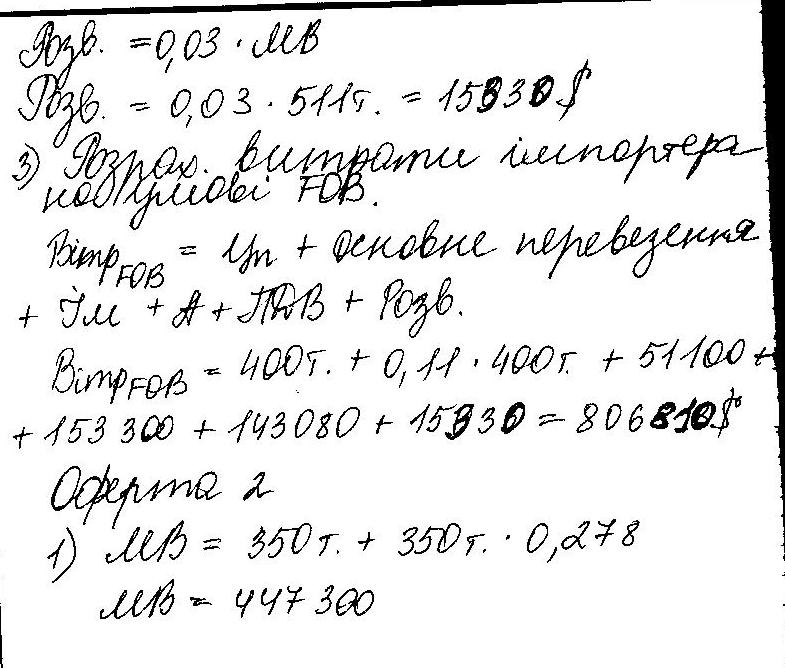 Розв. = 0,03 · МВ
Розв. = 0,03 · 511т. = 15330$
3) Розрах. витрати імпортера
на умові FOB.
Вімр FOB = Цп + основне перевезення
+ Ім + А + ПДВ + Розв.
Вімр FOB = 400т. + 0,11 · 400т. + 51100 +
+ 153 300 + 143080 + 15330 = 806810$
Оферта 2
1) МВ = 350т. + 350т. · 0,278
МВ = 447 300